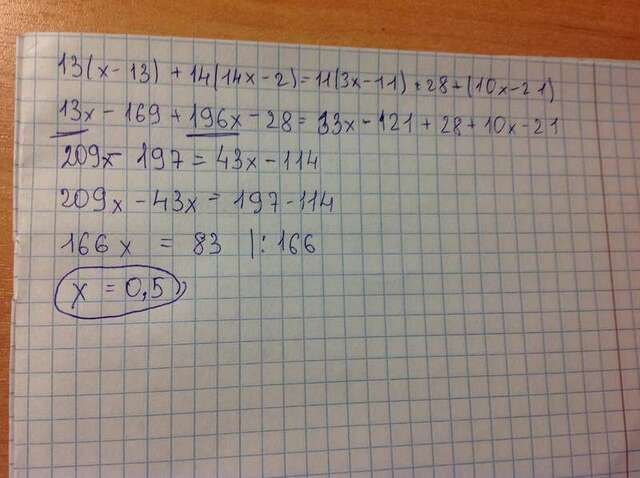 13(x-13) + 14(14x-2) = 11(3x-11) + 28 + (10x-21)
13x - 169 + 196x - 28 = 33x - 121 + 28 + 10x - 21
209x - 197 = 43x - 114
209x - 43x = 197 - 114
166x = 83 |: 166
x = 0,5